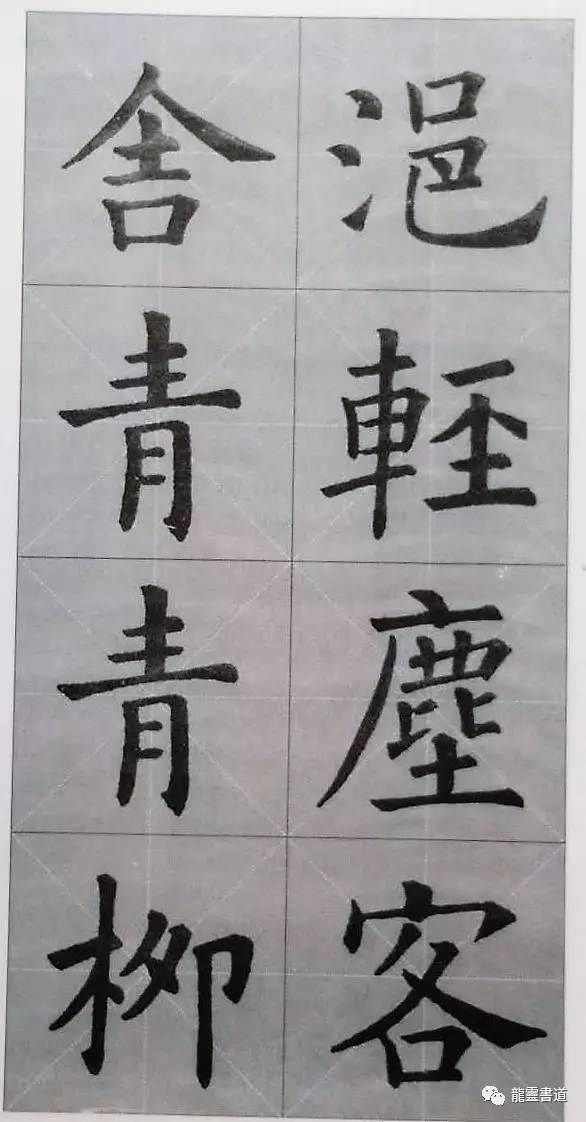 浥輕塵客
舍青青柳
龍靈書道